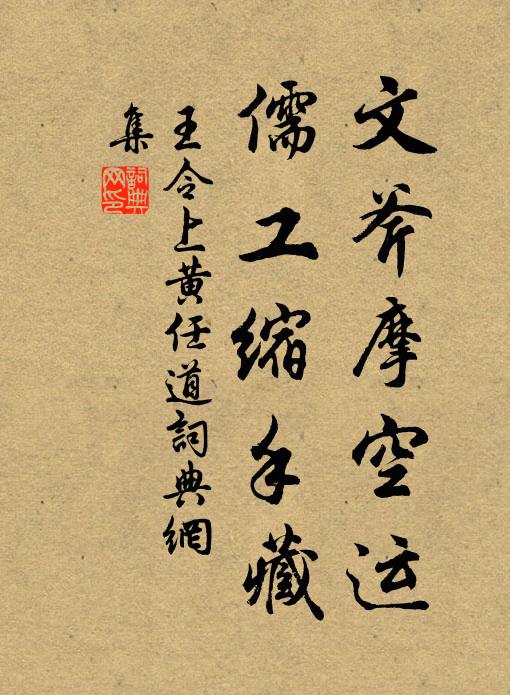 文斧摩空运
儒工缩手藏
王令上黄任道詞典網
集
詞典网印